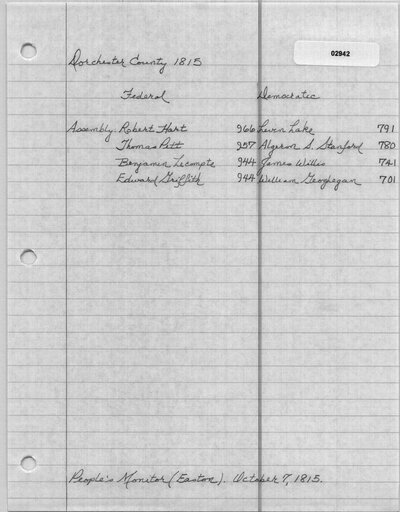 02942
Dorchester County 1815
Federal Democratic
Assembly: Robert Hart 966 Levin Lake 791
Thomas Pitt 957 Algeron S. Stanford 780
Benjamin Lecompte 944 James Willis 741
Edward Griffith 944 William Geoghegan 701
People's Monitor (Easton). October 7, 1815.